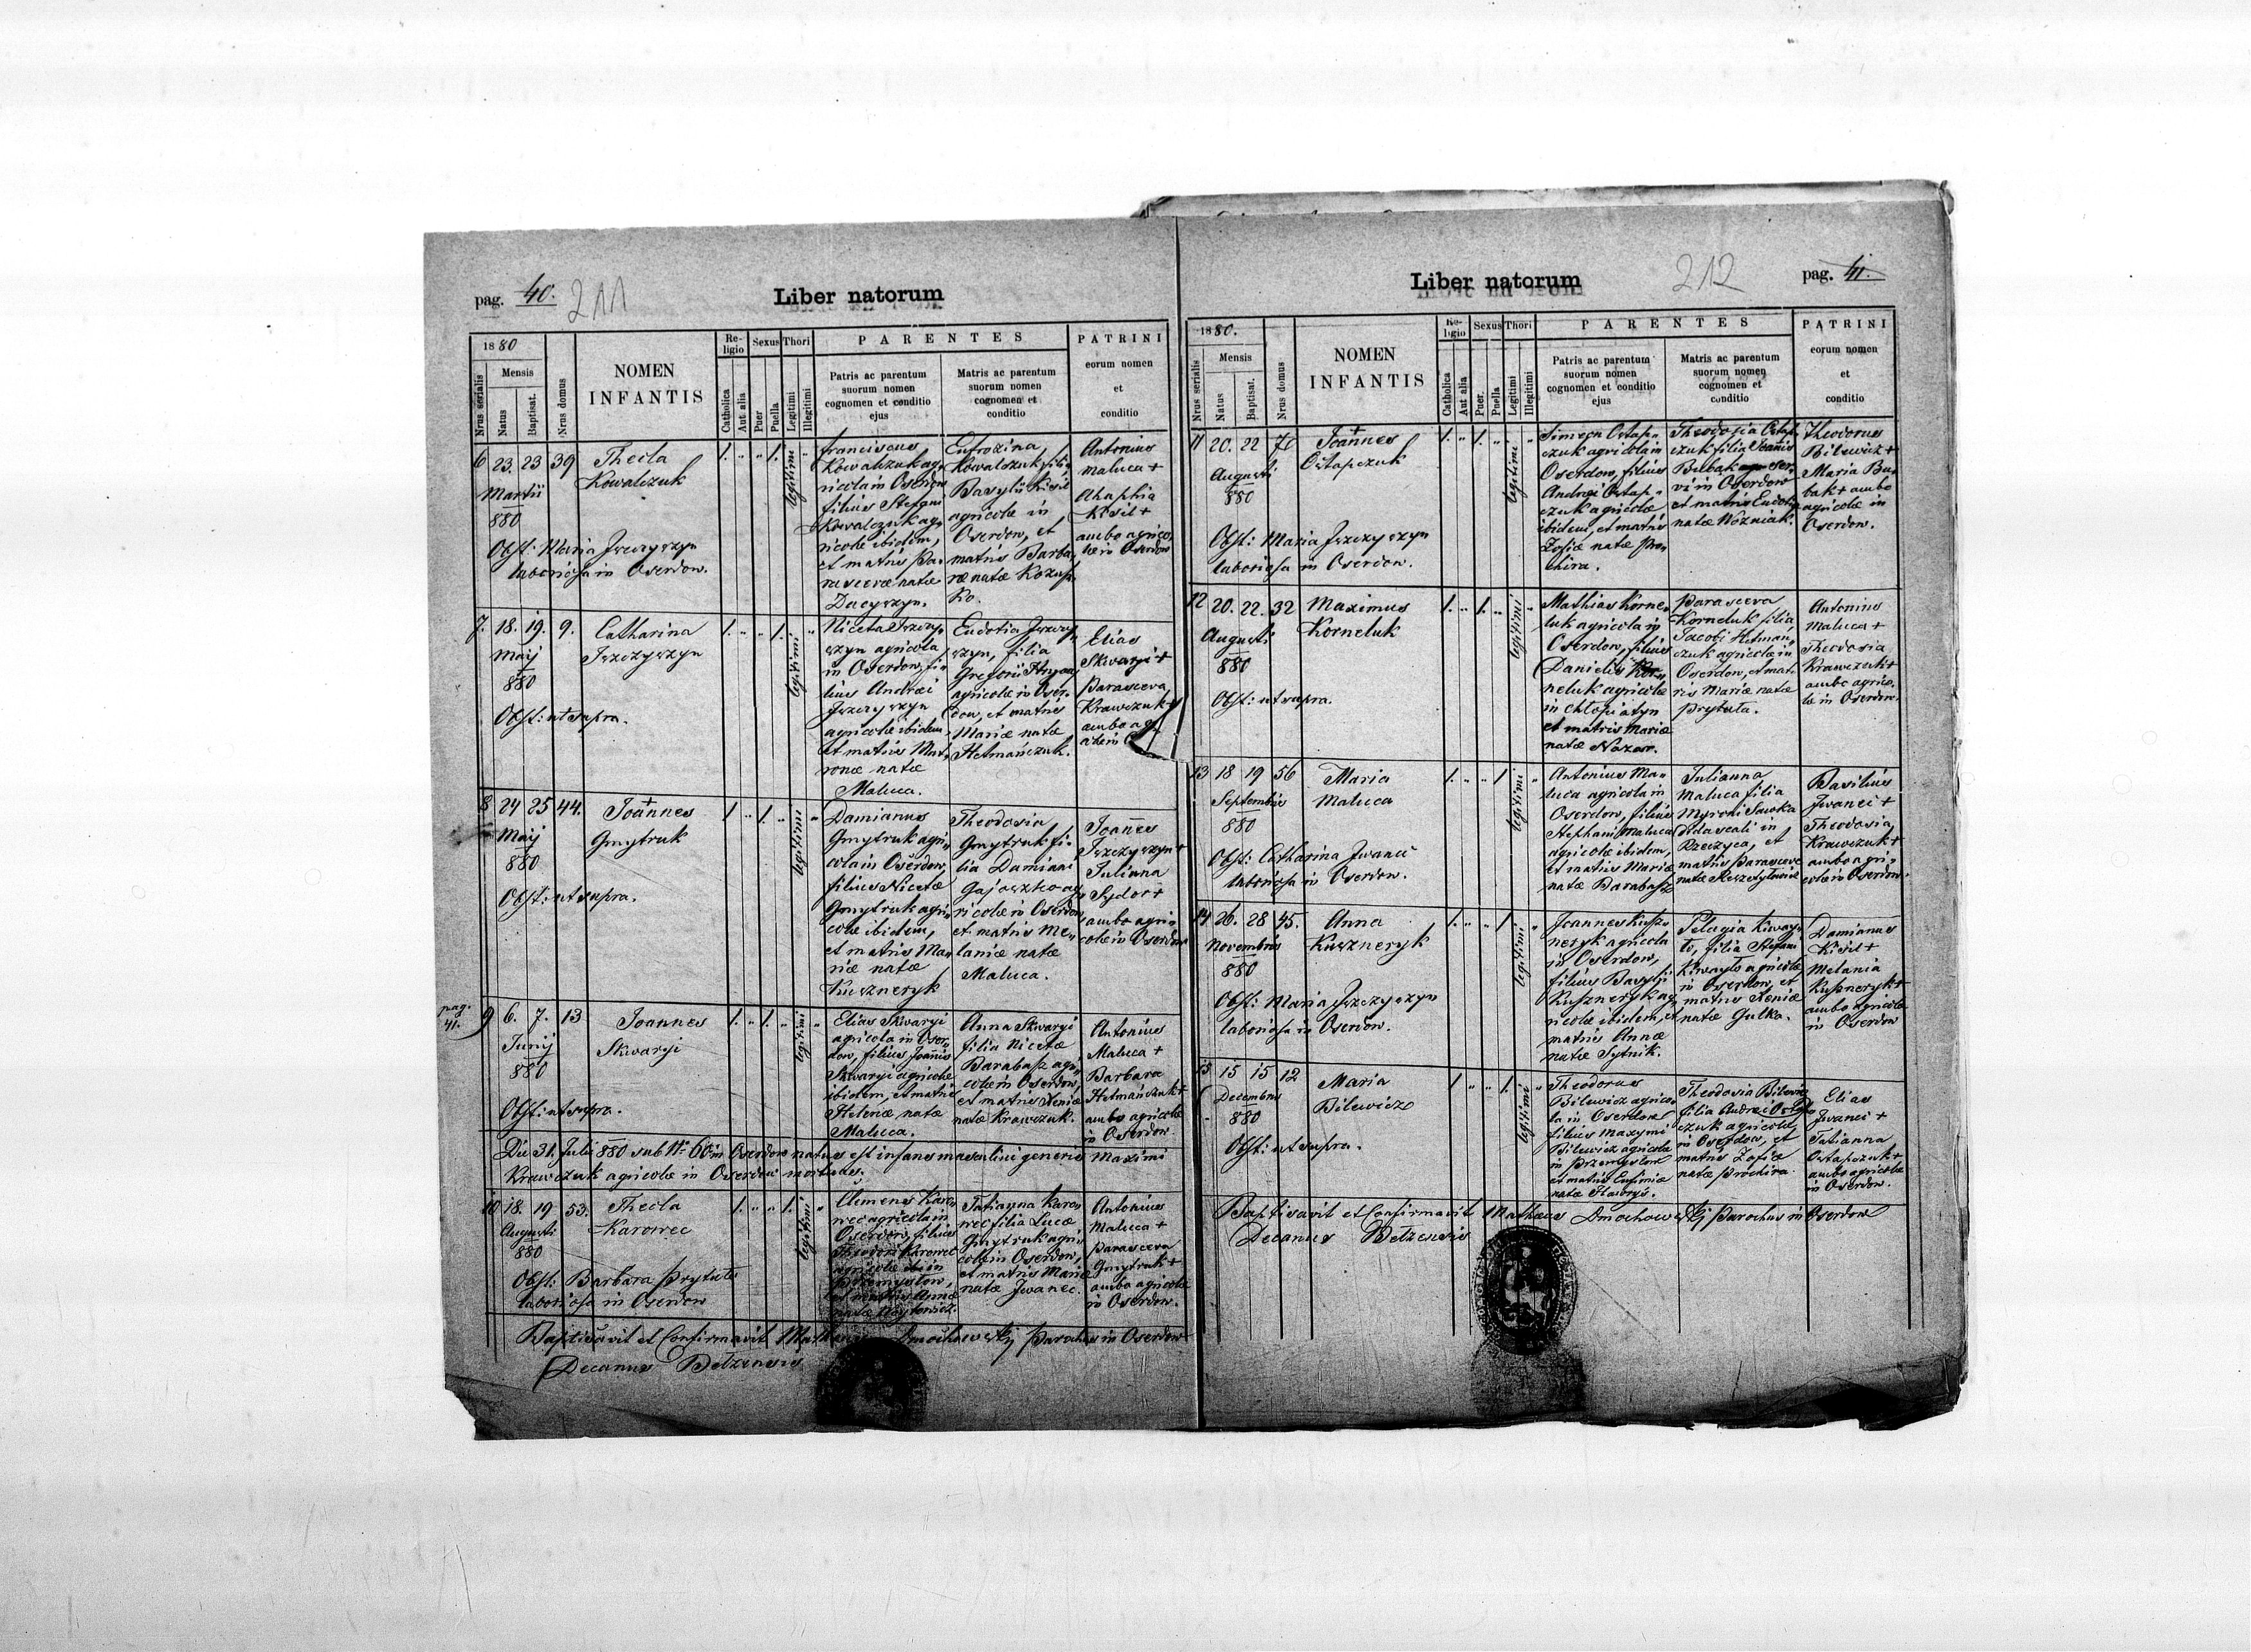 pag. 40. 211
Liber natorum
1880
Nrus serialis
Mensis
Natus
Baptisat.
Nrus domus
NOMEN
INFANTIS
Religio
Catholica
Aut alia
Sexus
Puer
Puella
Thori
Legitimi
Illegitimi
PARENTES
Patris ac parentum
suorum nomen
cognomen et conditio
ejus
Matris ac parentum
suorum nomen
cognomen et
conditio
PATRINI
eorum nomen
et
conditio
6 23. 23 39 Thecla
Kowalczuk
Martii
880
1. " " 1. legitimi "
Obst: Maria Jszczyszyn
laboriosa in Oserdow.
Franciscus
Kowalczuk ag,
ricola in Oserdow
filius Stefani
Kowalczuk ag,
ricolæ ibidem,
et matris Pa,
rascevæ natæ
Dacyszyn.
Eufrozina
Kowalczuk filia
Basylii Kisil
agricolæ in
Oserdow, et
matris Barba,
ræ natæ Kozusz,
ko.
Antonius
Maluca +
Ahaphia
Kisil +
ambo agrico,
læ in Oserdow
7. 18. 19. 9. Catharina
Jszczyszyn
Maij
880
1. " " 1. legitimi "
Obst: ut supra.
Niceta Jszczy,
szyn agricola
in Oserdow, fi,
lius Andrei
Jszczyszyn
agricolæ ibidem
et matris Mat,
ronæ natæ
Maluca.
Eudotia Jszczy,
szyn, filia
Gregorii
agricolæ in Oser,
dow, et matris
Mariæ natæ
Hetmańczuk.
Elias
Skwaryi +
Parasceva
Krawczuk +
ambo ag
colæ in O
8 24 25 44. Joannes
Gmytruk
Maij
880
1 " 1. " legitimi "
Obst: ut supra.
Damianus
Gmytruk agri,
cola in Oserdow,
filius Nicetæ
Gmytruk agri,
colæ ibidem,
et matris Ma,
riæ natæ
Kuszneryk
Theodosia
Gmytruk fi,
lia Damiani
Gajoszko ag,
ricolæ in Oserdow,
et matris Me,
laniæ natæ
Maluca.
Joannes
Jszczyszyn +
Juliana
Sydor +
ambo agri,
colæ in Oserdow
pag.
41.
9 6. 7. 13 Joannes
Skwaryi
Junij
880
1. " 1. " legitimi "
Obst: ut supra.
Elias Skwaryi
agricola in Oser,
dow, filius Joannis
Skwaryi agricolæ
ibidem, et matris
Helenæ natæ
Maluca.
Anna Skwaryi
filia Nicetæ
Barabasz agri,
colæ in Oserdow,
et matris Xeniæ
natæ Krawczuk.
Antonius
Maluca +
Barbara
Hetmańczuk +
ambo agricolæ
in Oserdow
Die 31. Julii 880 sub Nr 66 in Oserdow natus est infans masculini generis Maximi
Krawczuk agricolæ in Oserdow mortuus.
10 18. 19 53. Thecla
Karowec
Augusti
880
1. " " 1. legitimi "
Obst: Barbara Prytuła
laboriosa in Oserdow
Clemens Karo,
wec agricola in
Oserdow, filius
Theodori Karowec
agricolæ in
Przemysłow,
et matris Annæ
natæ
Tatianna Karo,
wec filia Lucæ
Gmytruk agri,
colæ in Oserdow,
et matris Mariæ
natæ Jwanec.
Antonius
Maluca +
Parasceva
Gmytruk +
ambo agricolæ
in Oserdow.
Baptisavit et Confirmavit Dmochowskij Parochus in Oserdow
Decanus Bełzensis
Liber natorum 212 pag. 41.
1880.
Nrus serialis
Mensis
Natus
Baptisat.
Nrus domus
NOMEN
INFANTIS
Religio
Catholica
Aut alia
Sexus
Puer.
Puella
Thori
Legitimi
Illegitimi
PARENTES
Patris ac parentum
suorum nomen
cognomen et conditio
ejus
Matris ac parentum
suorum nomen
cognomen et
conditio
PATRINI
eorum nomen
et
conditio
11 20. 22 Joannes
Ostapczuk
Augusti
880
1. " 1. " legitimi "
Obst: Maria Jszczyszyn
laboriosa in Oserdow.
Simeon Ostap,
czuk agricola in
Oserdow, filius
Andrei Ostap,
czuk agricolæ
ibidem, et matris
Zofiæ natæ Pro,
chira.
Theodosia Ostap,
czuk filia Joannis
Bubak ser,
vi in Oserdow
et matris Eudotiæ
natæ Wozniak.
Theodorus
Bilewicz +
Maria Bu,
bak + ambo
agricolæ in
Oserdow.
12 20. 22. 32 Maximus
Korneluk
Augusti
880
1. " 1. " legitimi "
Obst: ut supra.
Mathias Korne,
luk agricola in
Oserdow, filius
Danielis Kor,
neluk agricolæ
in Chłopiatyn
et matris Mariæ
natæ Nazar.
Parasceva
Korneluk filia
Jacobi Hetman,
czuk agricolæ in
Oserdow, et mat,
ris Mariæ natæ
Prytuła.
Antonius
Maluca +
Theodosia
Krawczuk +
ambo agrico,
læ in Oserdow.
13 18 19 56 Maria
Maluca
Septembris
880
1. " " 1 legitimi "
Obst: Catharina Jwanci
laboriosa in Oserdow.
Antonius Ma,
luca agricola in
Oserdow, filius
Stephani Maluca
agricolæ ibidem,
et matris Mariæ
natæ Barabasz
Julianna
Maluca filia
Myroni Sawka
didascali in
Rzeczyca, et
matris Parascevæ
natæ
Basilius
Jwanci +
Theodosia
Krawczuk +
ambo agri,
colæ in Oserdow.
14 26. 28 45. Anna
Kuszneryk
Novembris
880
1. " " 1 legitimi "
Obst: Maria Jszczyszyn
laboriosa in Oserdow.
Joannes Kusz,
neryk agricola
in Oserdow,
filius Basylij
Kuszneryk ag,
ricolæ ibidem, et
matris Annæ
natæ Sytnik.
Pelagia
filia Stefani
agricolæ
in Oserdow, et
matris Xeniæ
natæ Gulka.
Damianus
Kisil +
Melania
Kuszneryk +
ambo agricolæ
in Oserdow
15 15 15 12 Maria
Bilewicz
Decembris
880
1 " " 1. legitimi "
Obst: ut supra.
Theodorus
Bilewicz agrico,
la in Oserdow
filius Maxymi
Bilewicz agricolæ
in Przemysłow
et matris Eufimiæ
natæ
Theodosia Bilewicz
filia Andrei Ostap,
czuk agricolæ
in Oserdow, et
matris Zofiæ
natæ Prochira.
Elias
Jwanci +
Tatianna
Ostapczuk +
ambo agricolæ
in Oserdow.
Baptisavit et Confirmavit Mathæus Dmochowskij Parochus in Oserdow
Decanus Bełzensis